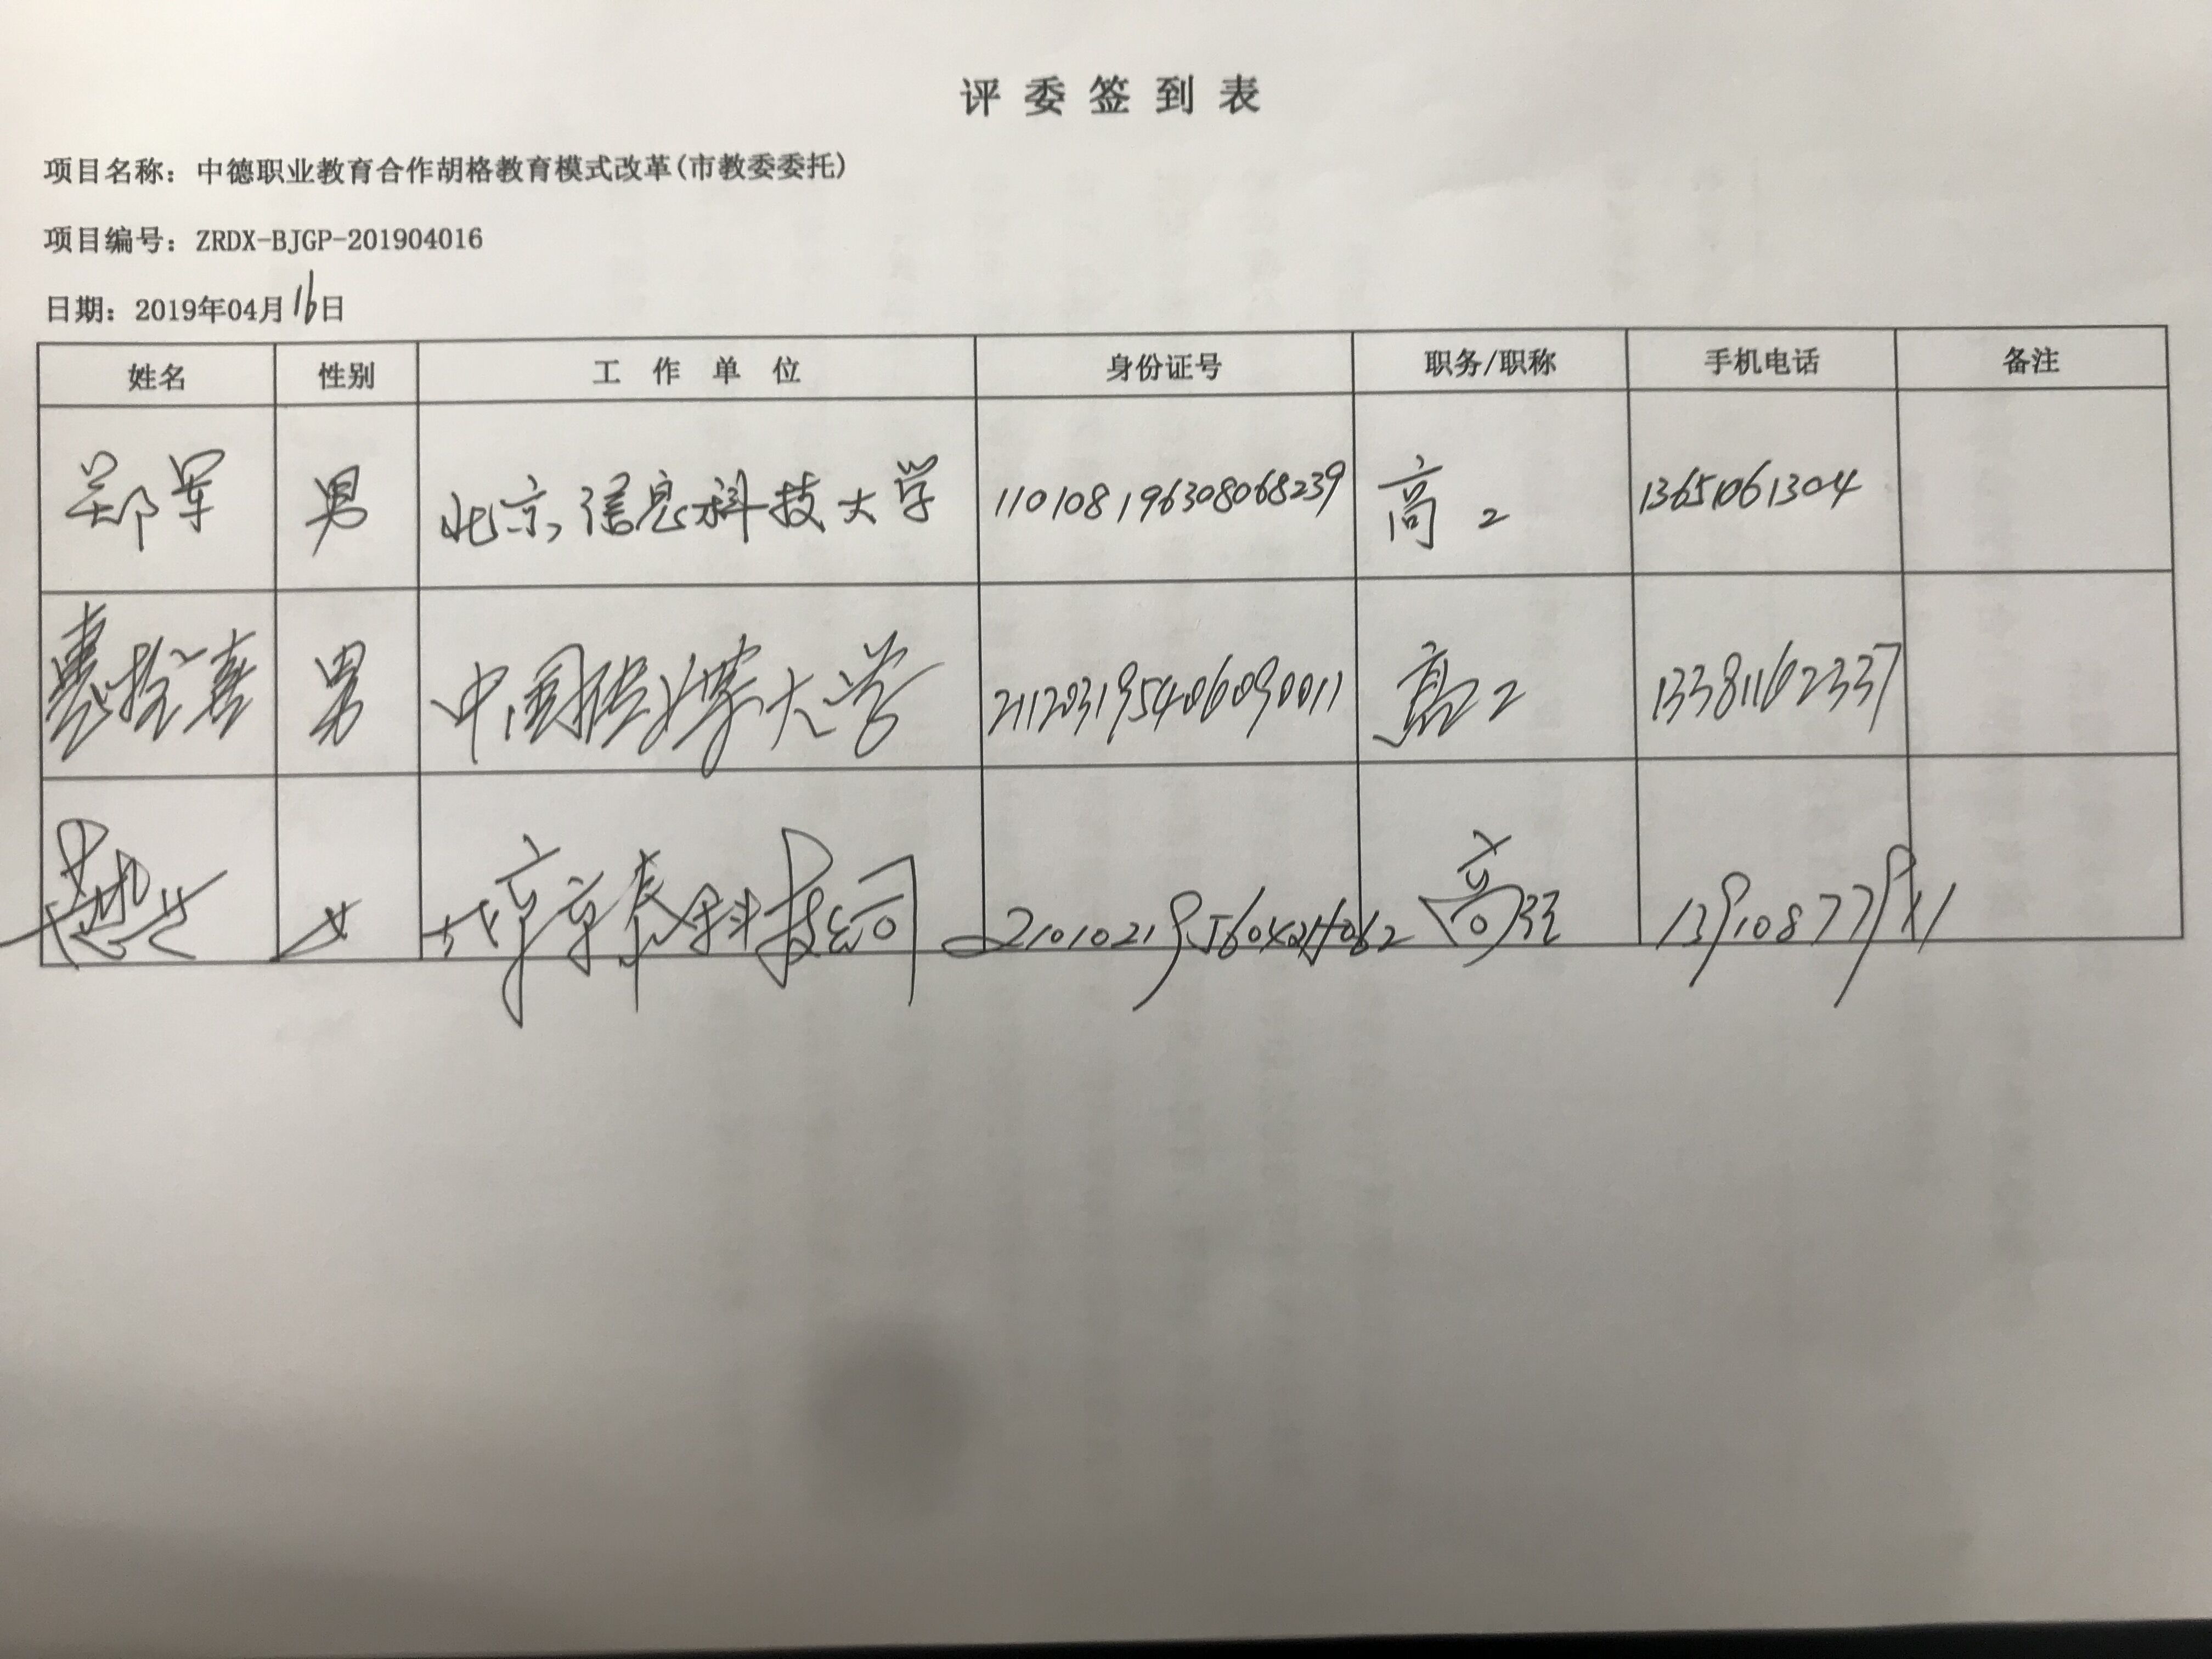 评委签到表
项目名称：中德职业教育合作胡格教育模式改革(市教委委托)
项目编号：ZRDX-BJGP-201904016
日期：2019年04月16日
姓名 性别 工作单位 身份证号 职务/职称 手机电话 备注
郑军 男 北京信息科技大学 110108196308068239 高工 13651061304
男 中国传媒大学 211203195406090011 高工 13381162337
女 高工